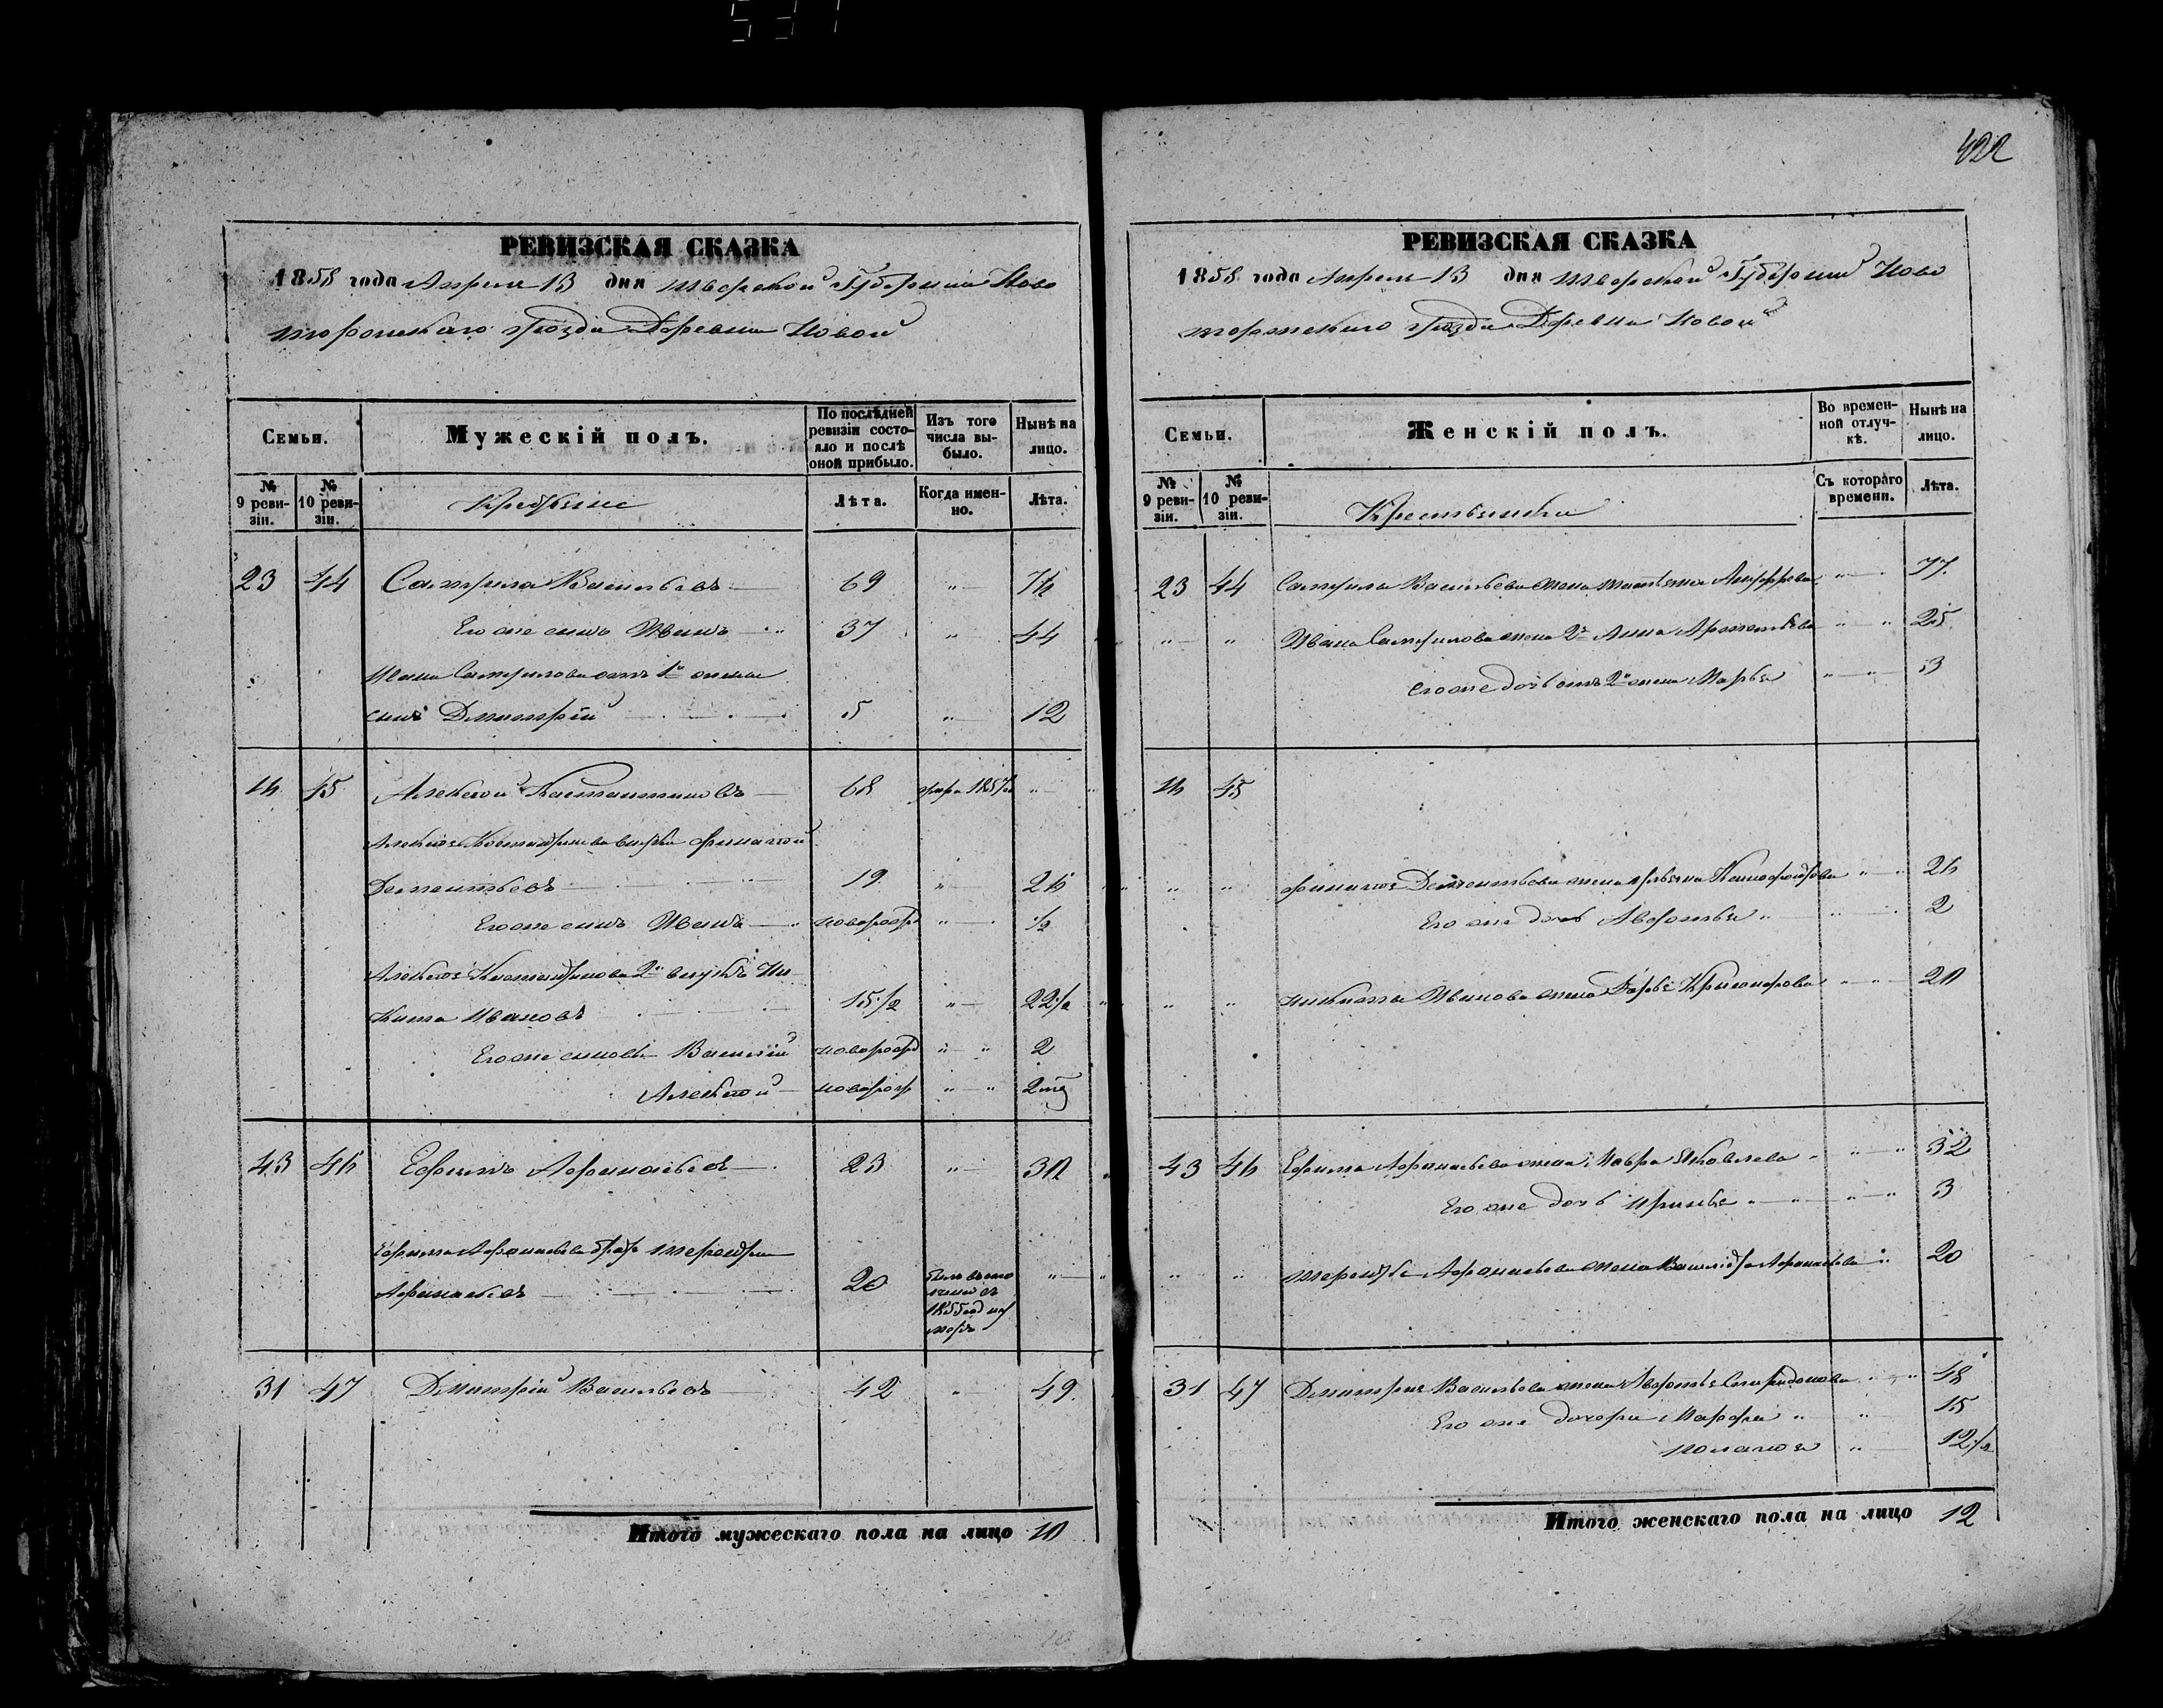 422
РЕВИЗСКАЯ СКАЗКА
1858 года Апреля 13 дня Тверской Губернии Ново
торжскаго Уезда Деревни Новой
Семьи.
Мужескій полъ.
По послѣдней ревизіи состояло и послѣ оной прибыло.
Изъ того числа выбыло.
Нынѣ на лицо.
№ 9 ревизіи.
№ 10 ревизіи.
Крестьяне
Лѣта.
Когда именно.
Лѣта.
23 44 Васильевъ 69 " 76
Его же сынъ Иванъ 37 " 44
Ивана отъ 1й жены
сынъ Дмитрій 5 " 12
16 45 Алексей Костантиновъ 68 1857 "
Алексея Костантинова внукъ
Дементьевъ 19 " 26
Его же сынъ Иванъ новорожд " 1/2
Алексея Костантинова 2й внукъ Ни
кита Ивановъ 15 1/2 " 22 1/2
Его же сыновья Василій новорожд " " 2
Алексей новорож " " 2
43 46 Ефимъ Афанасьевъ 23 " 30
Ефима Афанасьева братъ Терентій
Афанасьевъ 20 1855 "
31 47 Дмитрій Васильевъ 42 " 49
Итого мужескаго пола на лицо 10
РЕВИЗСКАЯ СКАЗКА
1858 года Апреля 13 дня Тверской Губернии Ново
торжскаго Уезда Деревни Новой
Семьи.
Женскій полъ.
Во временной отлучкѣ.
Нынѣ на лицо.
№ 9 ревизіи.
№ 10 ревизіи.
Крестьянки
Съ котораго времени.
Лѣта.
23 44 Васильева жена " 77
" " Ивана жена 2я Анна Артемьева " " 25
его же дочь отъ 2й жены Марья " " 3
16 45
" " Дементьева жена " " 26
Его же дочь Авдотья " " 2
" " Никиты Иванова жена Дарья " " 20
43 46 Ефима Афанасьева жена Мавра Яковлева " " 32
Его же дочь " " 3
" " Терентья Афанасьева жена Афанасьева " 20
31 47 Дмитрия Васильева жена Авдотья Спиридонова " " 48
Его же дочери Марфа " " 15
Пелагея " 12 1/2
Итого женскаго пола на лицо 12